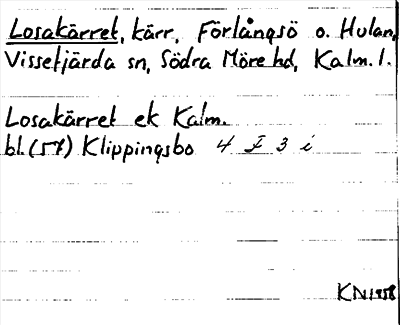 Losakärret, kärr, Förlångsö o. Hulan,
Vissefjärda sn, Södra Möre hd, Kalm. l.
Losakärret ek Kalm.
bl. (54) Klippingsbo 4 F 3 i
KN 1958